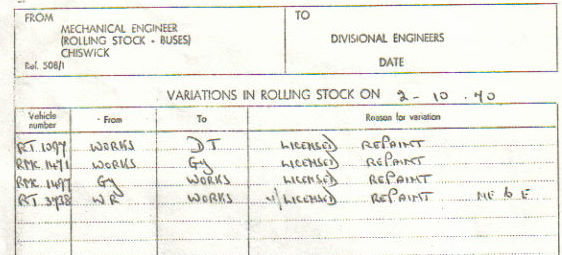 FROM
MECHANICAL ENGINEER
(ROLLING STOCK - BUSES)
CHISWICK
Ref. 508/1
TO
DIVISIONAL ENGINEERS
DATE
VARIATIONS IN ROLLING STOCK ON 2 - 10 . 70
Vehicle number From To Reason for variation
RT. 1097 WORKS DT LICENSED REPAINT
RMC. 1471 WORKS Gy LICENSED REPAINT
RMC. 1497 Gy WORKS LICENSED REPAINT
RT. 3728 WR WORKS LICENSED REPAINT